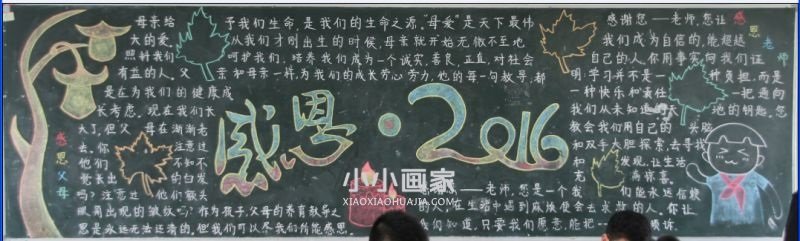 母亲给
大的爱,
照料我们
有益的人。父
是在为我们的健康成
长考虑。现在我们长
大了,但父母在渐渐老
去。你注意过
他们不知不
觉长出的白发
吗?注意过他们额头
眼角出现的皱纹吗?作为孩子,父母的养育教导之
恩是永远无法还清的,但我们可以尽我们所能感恩。
感恩父母
予我们生命,是我们的生命之源。"母爱"是天下最伟
从我们才刚出生的时候,母亲就开始无微不至地
呵护我们、培养我们成为一个诚实、善良、正直,对社会
亲和母亲一样,为我们的成长劳心劳力,他的每一句教导,都
感恩·2016
小小画家
XIAOXIAOHUAJIA.COM
感谢您——老师,您让
我们成为自信的,能超越
自己的人。你用事实向我们证
明:学习并不是一种负担,而是
一种快乐和责任一把通向
我们从未知道的地的钥匙。您
教会我们用自己的头脑
和双手大胆探索,去寻找
和发现,让生活
充满惊喜。
感恩老师
——老师,您是一个我们能永远信赖
的人,在生活中遇到麻烦便会去求救的人。你让
我们知道,只要我们愿意,能把一诉。